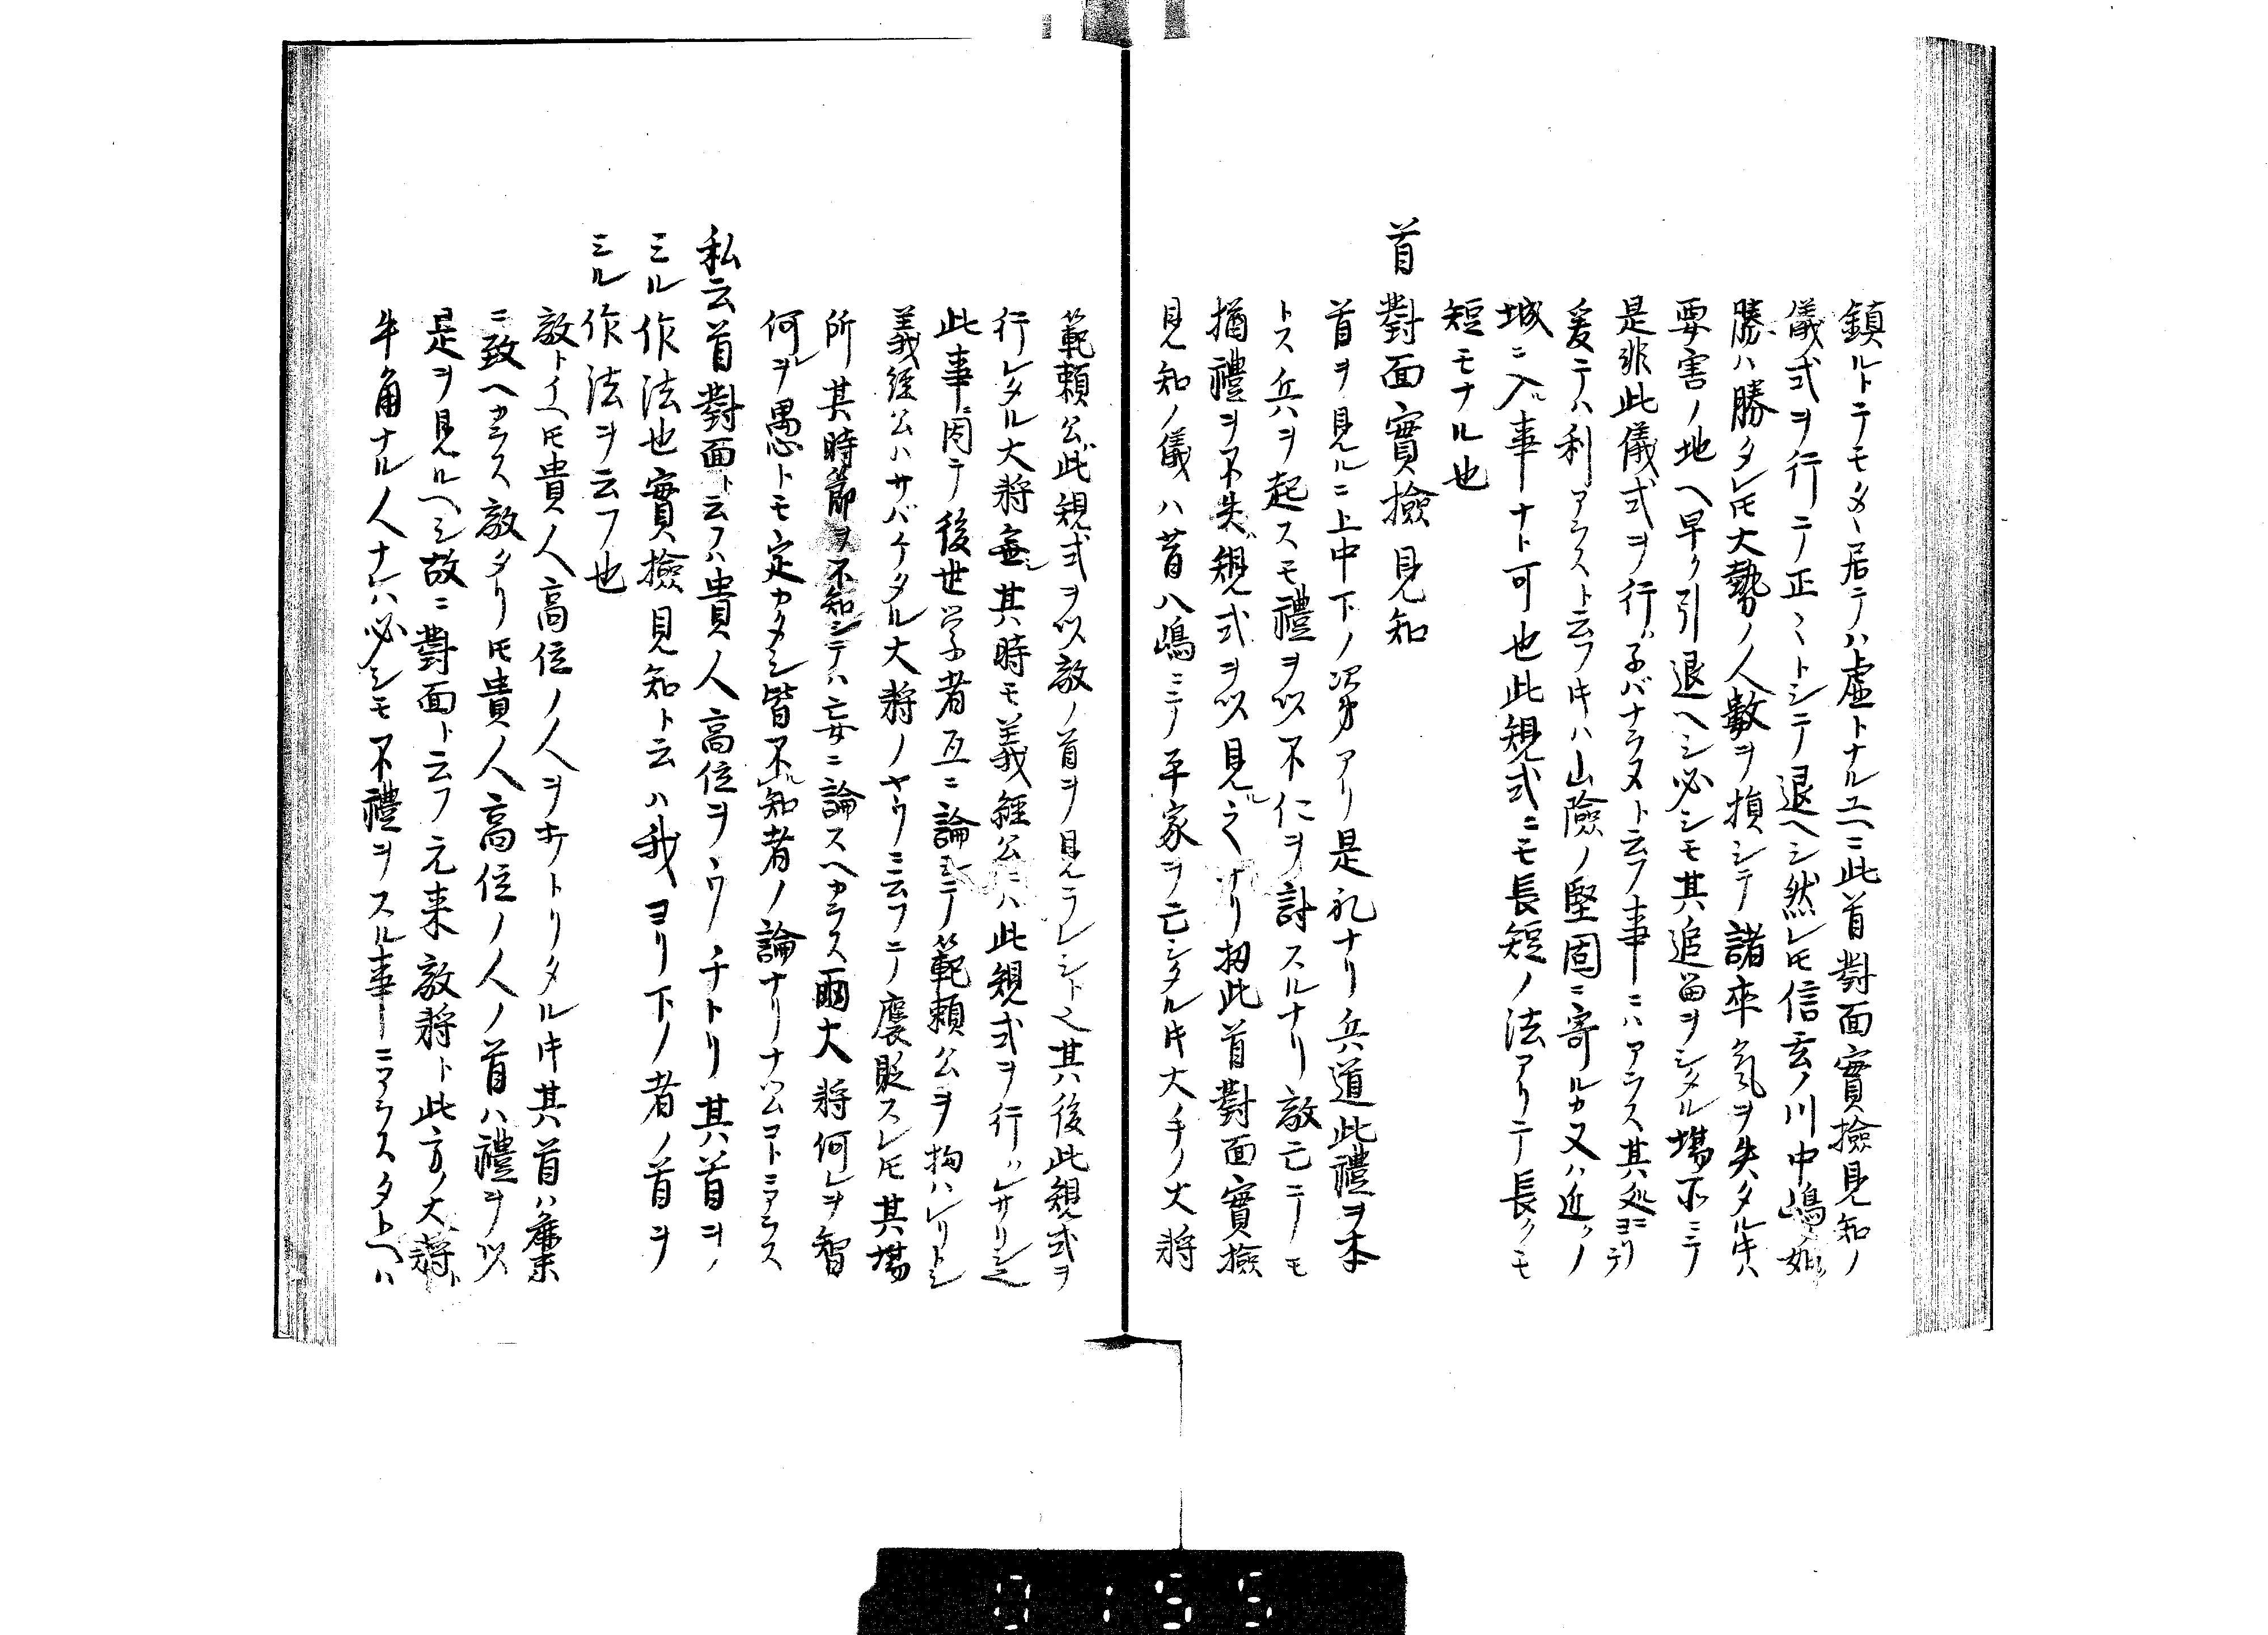 鎮ルトテモタメ居テハ虚トナルユヘニ此首對面實撿見知ノ
儀式ヲ行ニテ正〻トシテ退ヘシ然レ𪜈信玄ノ川中嶋ノ如ク
勝ハ勝タレ𪜈大勢ノ人數ヲ損シテ諸卒氣ヲ失タル𪜈ハ
要害ノ地ヘ早ク引退ヘシ必シモ其追留ヲシタル場所ニテ
是非此儀式ヲ行ハ子バナラヌト云フ事ニハアラス其処ヨリ
爰テハ利アラスト云フ𪜈ハ山險ノ堅固ニ寄ルカ又ハ近クノ
城ニ入ル事ナト可也此規式ニモ長短ノ法アリテ長クモ
短モナル也
首對面實撿見知
首ヲ見ルニ上中下ノ次第アリ是礼ナリ兵道此禮ヲ本
トス兵ヲ起スモ禮ヲ以不仁ヲ討スルナリ敵亡ニテモ
猶禮ヲ不失規式ヲ以見ル之ナリ扨此首對面實撿
見知ノ儀ハ昔八嶋ニテ平家ヲ亡シタル𪜈大手ノ大將
範頼公此規式ヲ以敵ノ首ヲ見ラレシト之其後此規式ヲ
行レタル大將無シ其時モ義經公ハ此規式ヲ行ハレサリシ之
此事ニ因テ後世学者互ニ論シテ範頼公ヲ拘ハレリトシ
義經公ハサバケタル大將ノヤウニ云フニテ褒貶スレ𪜈其場
所其時節ヲ不知シテハ妄ニ論スヘカラス兩大將何レヲ智
何レヲ愚トモ定カタシ皆不知者ノ論ナリナツムコトニアラス
私云首對面ト云フハ貴人高位ヲウチトリ其首ヲ
ミル作法也實撿見知ト云ハ我ヨリ下ノ者ノ首ヲ
ミル作法ヲ云フ也
敵トイヘ𪜈貴人高位ノ人ヲ討トリタル𪜈其首ハ麁末
ニ致ヘカラス敵タリ𪜈貴人高位ノ人ノ首ハ禮ヲ以
是ヲ見ルヘシ故ニ對面ト云フ元来敵將ト此方ノ大將ト
牛角ナル人ナレハ必シモ不禮ヲスル事ニアラスタトヘハ
0155